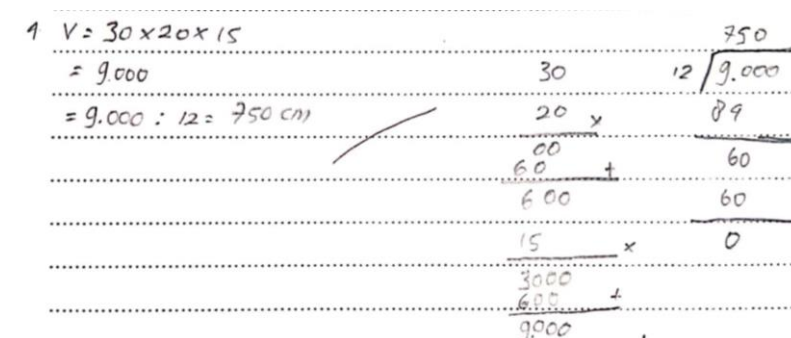 1 V = 30 x 20 x 15
= 9.000
= 9.000 : 12 = 750 cm
30
20 x
00
60 +
600
15 x
3000
600 +
9000
750
12 / 9.000
84
60
60
0